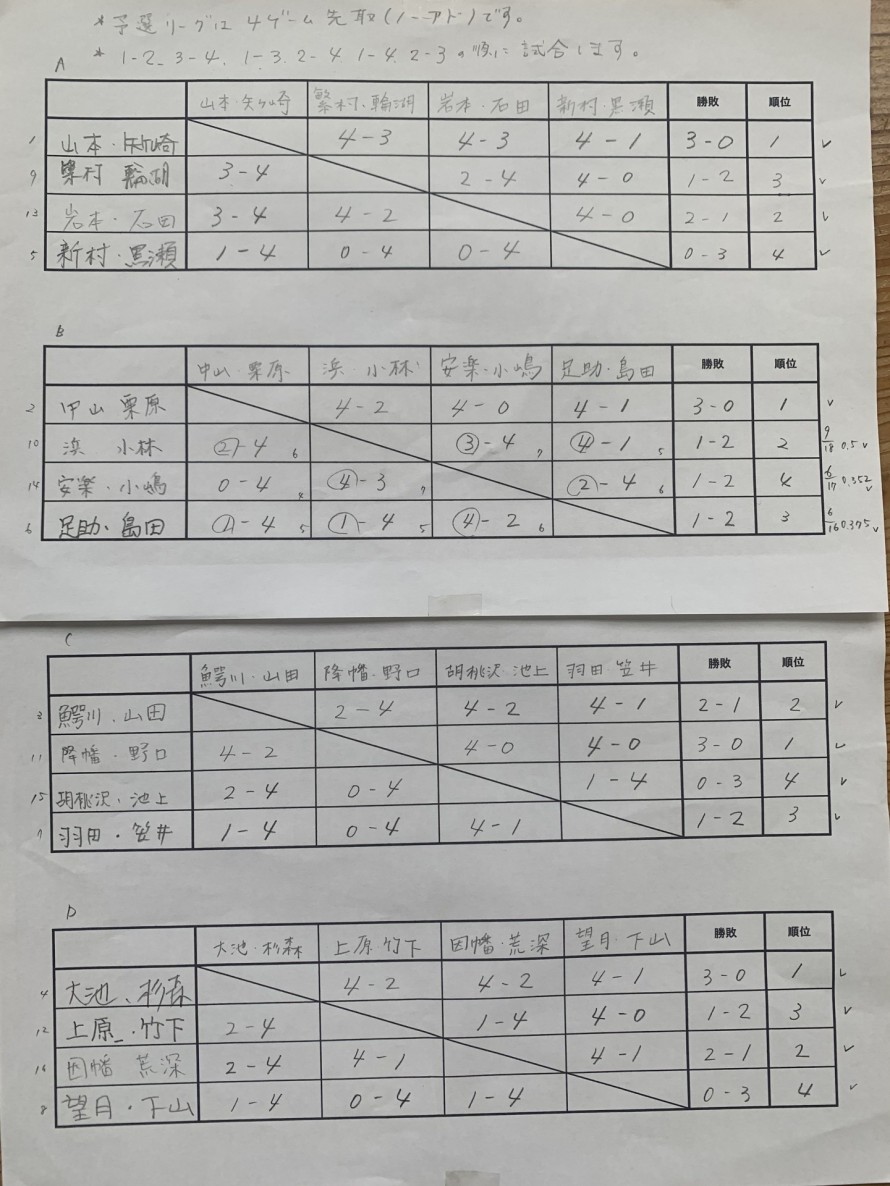 *予選リーグは4ゲーム先取(ノーアド)です。
* 1-2. 3-4. 1-3. 2-4. 1-4. 2-3の順に試合します。
A
山本・矢崎 繁村・輪湖 岩本・石田 新村・黒瀬 勝敗 順位
1 山本・矢崎 4-3 4-3 4-1 3-0 1 ✓
9 繁村 輪湖 3-4 2-4 4-0 1-2 3 ✓
13 岩本・石田 3-4 4-2 4-0 2-1 2 ✓
5 新村・黒瀬 1-4 0-4 0-4 0-3 4 ✓
B
中山・栗原 浜 小林 安楽・小嶋 足助・島田 勝敗 順位
2 中山 栗原 4-2 4-0 4-1 3-0 1 ✓
10 浜 小林 ②-4 6 ③-4 7 ④-1 5 1-2 2 9/18 0.5 ✓
14 安楽・小嶋 0-4 ④-3 7 ②-4 6 1-2 4 6/17 0.352 ✓
6 足助・島田 ①-4 5 ①-4 5 ④-2 6 1-2 3 6/16 0.375 ✓
C
鰐川・山田 降幡・野口 胡桃沢・池上 羽田・笠井 勝敗 順位
3 鰐川・山田 2-4 4-2 4-1 2-1 2 ✓
11 降幡・野口 4-2 4-0 4-0 3-0 1 ✓
15 胡桃沢・池上 2-4 0-4 1-4 0-3 4 ✓
7 羽田・笠井 1-4 0-4 4-1 1-2 3 ✓
D
大池・杉森 上原 竹下 因幡・荒深 望月・下山 勝敗 順位
4 大池、杉森 4-2 4-2 4-1 3-0 1 ✓
12 上原・竹下 2-4 1-4 4-0 1-2 3 ✓
16 因幡 荒深 2-4 4-1 4-1 2-1 2 ✓
8 望月・下山 1-4 0-4 1-4 0-3 4 ✓